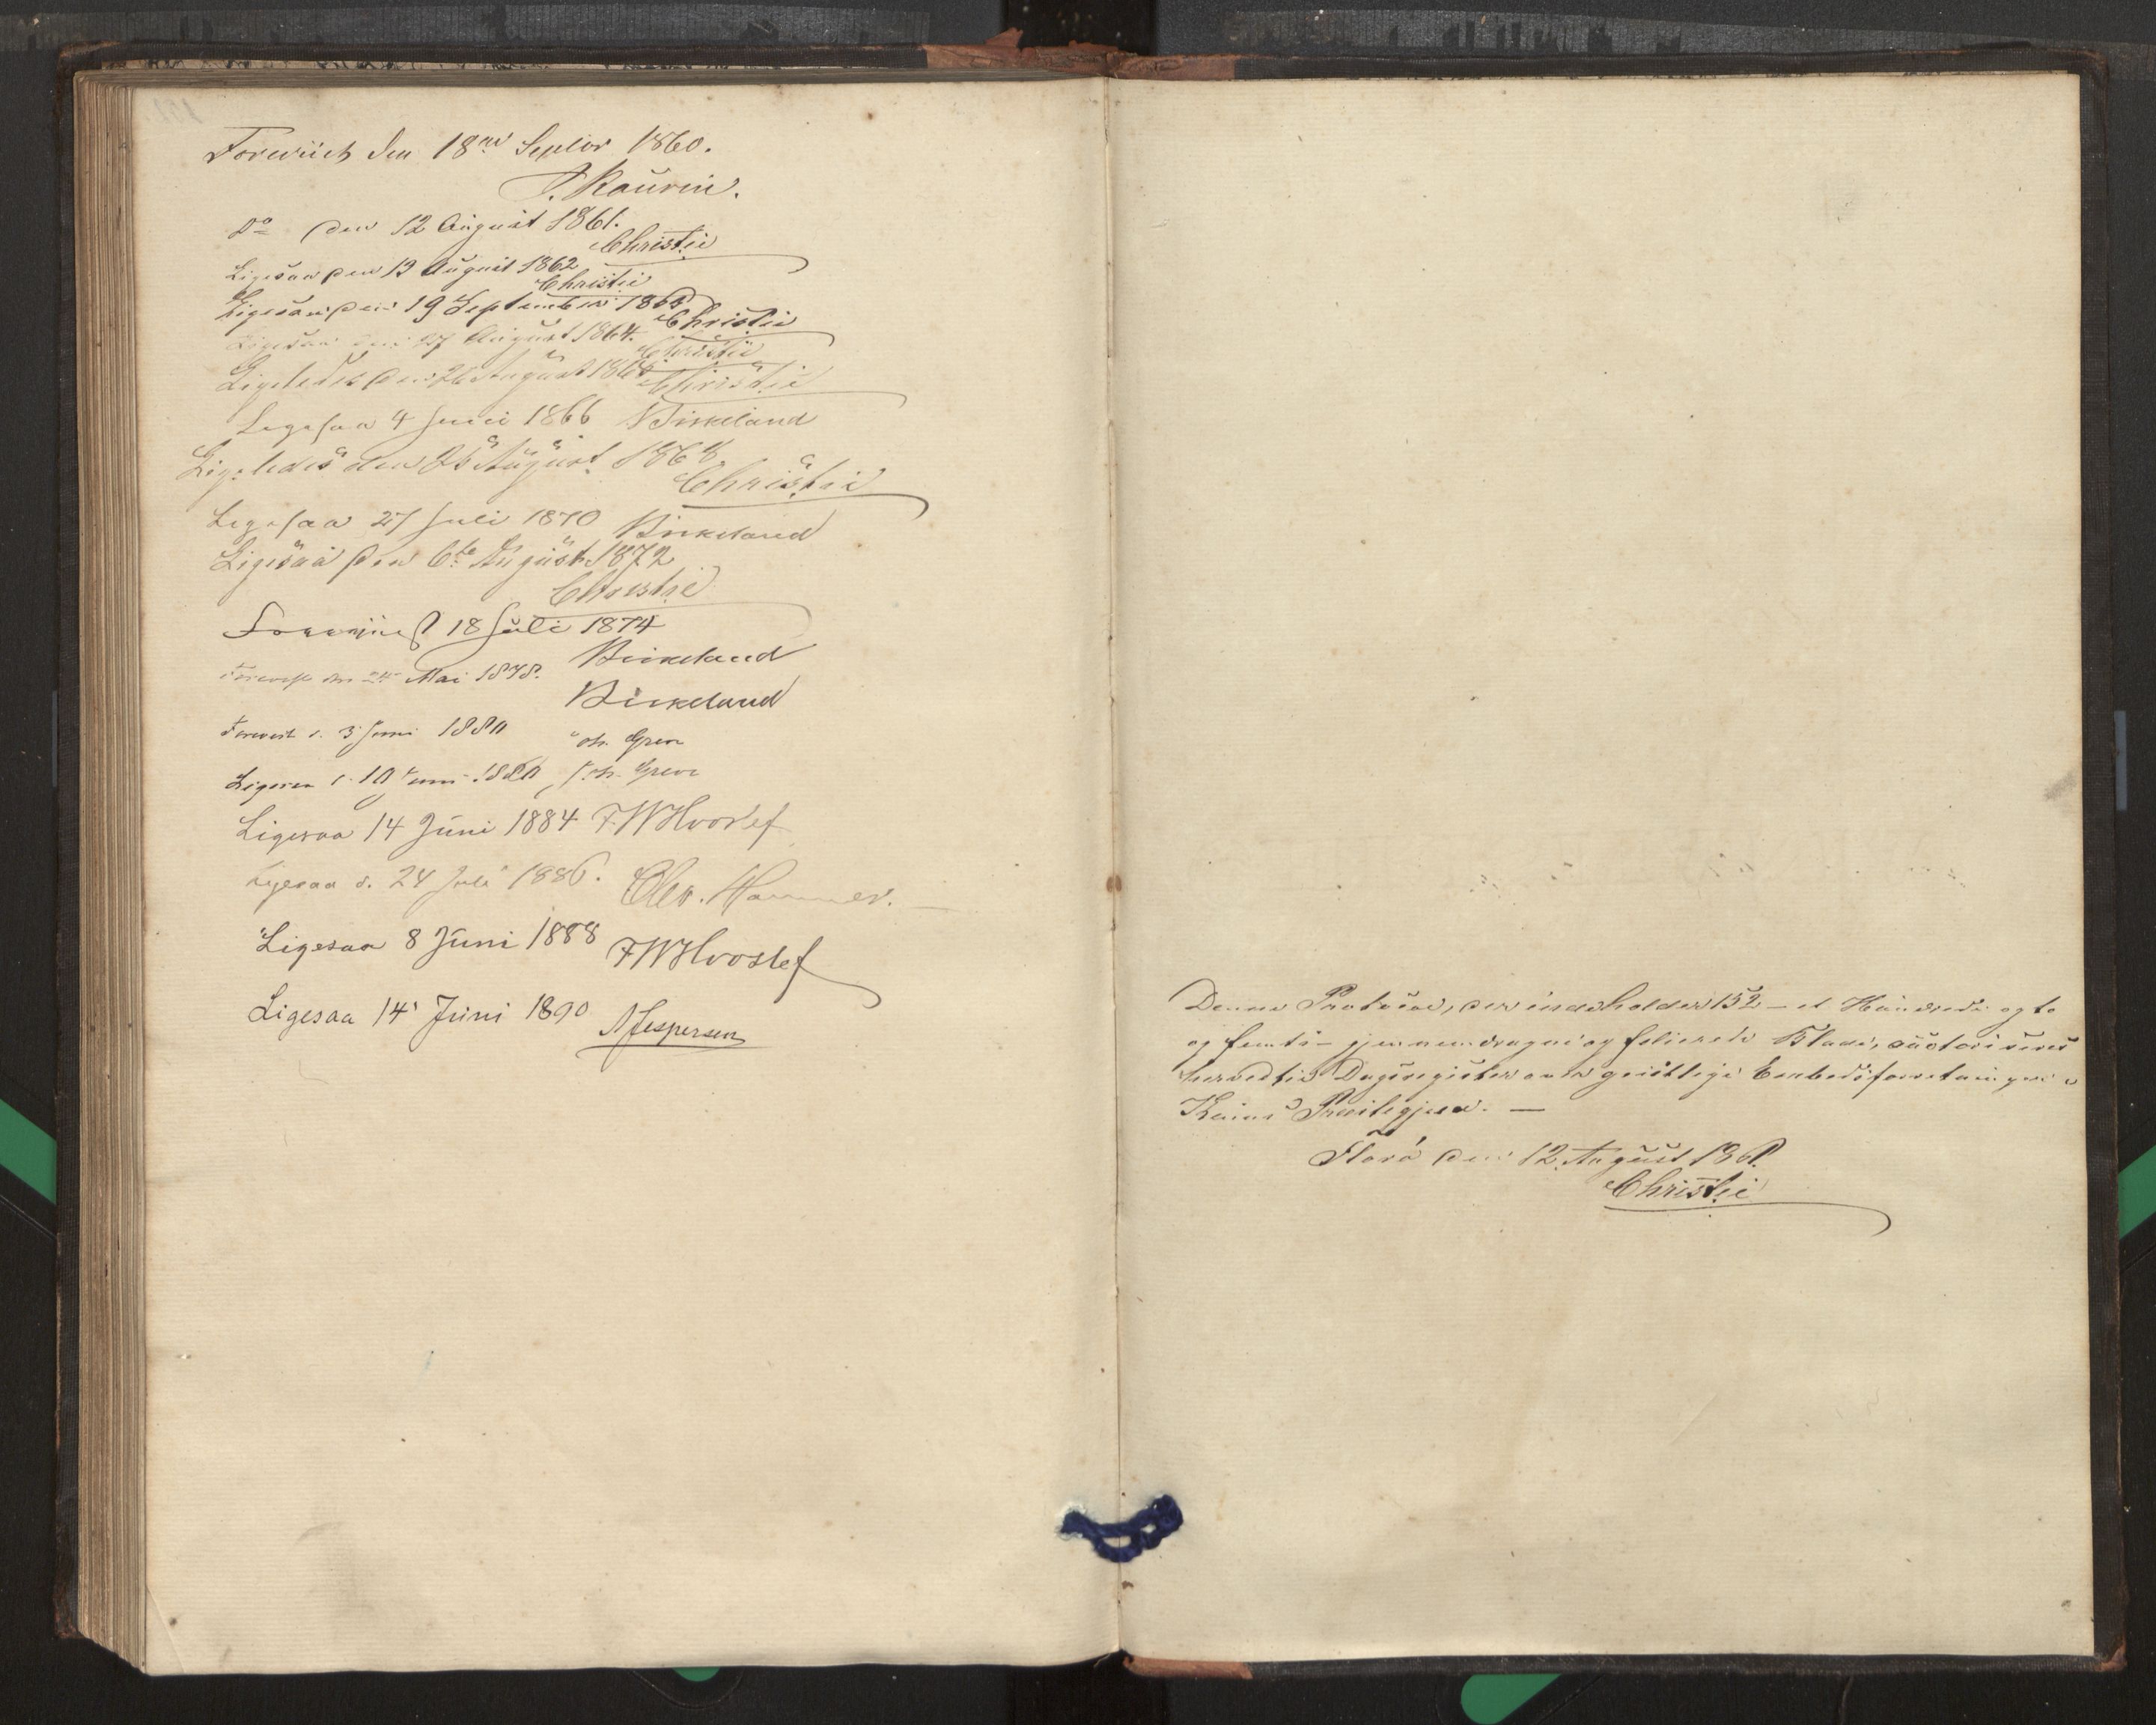 Foreviist den 18de Septbr 1860.
J. Kaurin.
Do den 12 August 1861.
Christie
Ligesaa den 13 August 1862
Christie
Ligesaa den 19 September 1863
Christie
Ligesaa den 27 August 1864.
Christie
Ligeledes den 26 August 1865
Christie
Ligesaa 4 Juni 1866 Birkeland
Ligeledes den 25 August 1868.
Christie
Ligesaa 27 Juli 1870 Birkeland
Ligesaa den 6te August 1872
Christie
Foreviist 18 Juli 1874
Birkeland
Forevist den 24 Mai 1878.
Birkeland
Forevist d. 3 Juni 1880
Joh. Greve
Ligesaa d. 10 Juni 1880, Joh. Greve
Ligesaa 14 Juni 1884 F W Hvoslef
Ligesaa d. 24 Juli 1886. Chr. Hammer.
Ligesaa 8 Juni 1888 F W Hvoslef
Ligesaa 14 Juni 1890 N Jespersen
Denne Protocol, der indeholder 152 – et Hundrede og to
og femti – gjennemdragne og folierede Blade, autoriseres
herved til Dagsregister over geistlige Embedsforretninger i
Kinns Præstegjeld. —
Florø den 12 August 1861.
Christie